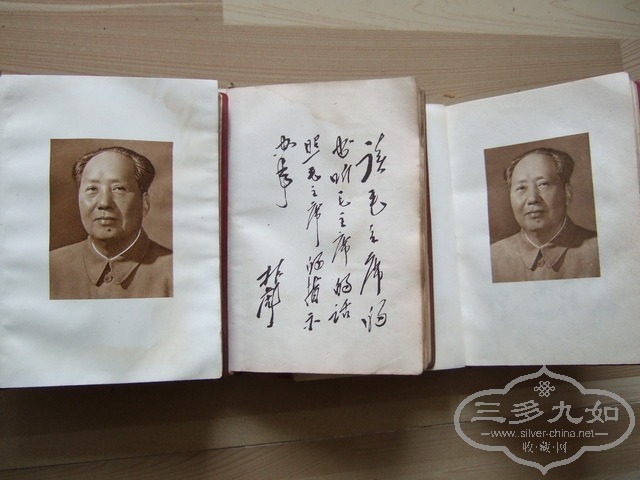 读毛主席的
书听毛主席的话
照毛主席的指示
办事
林彪
三多九如
www.silver-china.net
收·藏·网